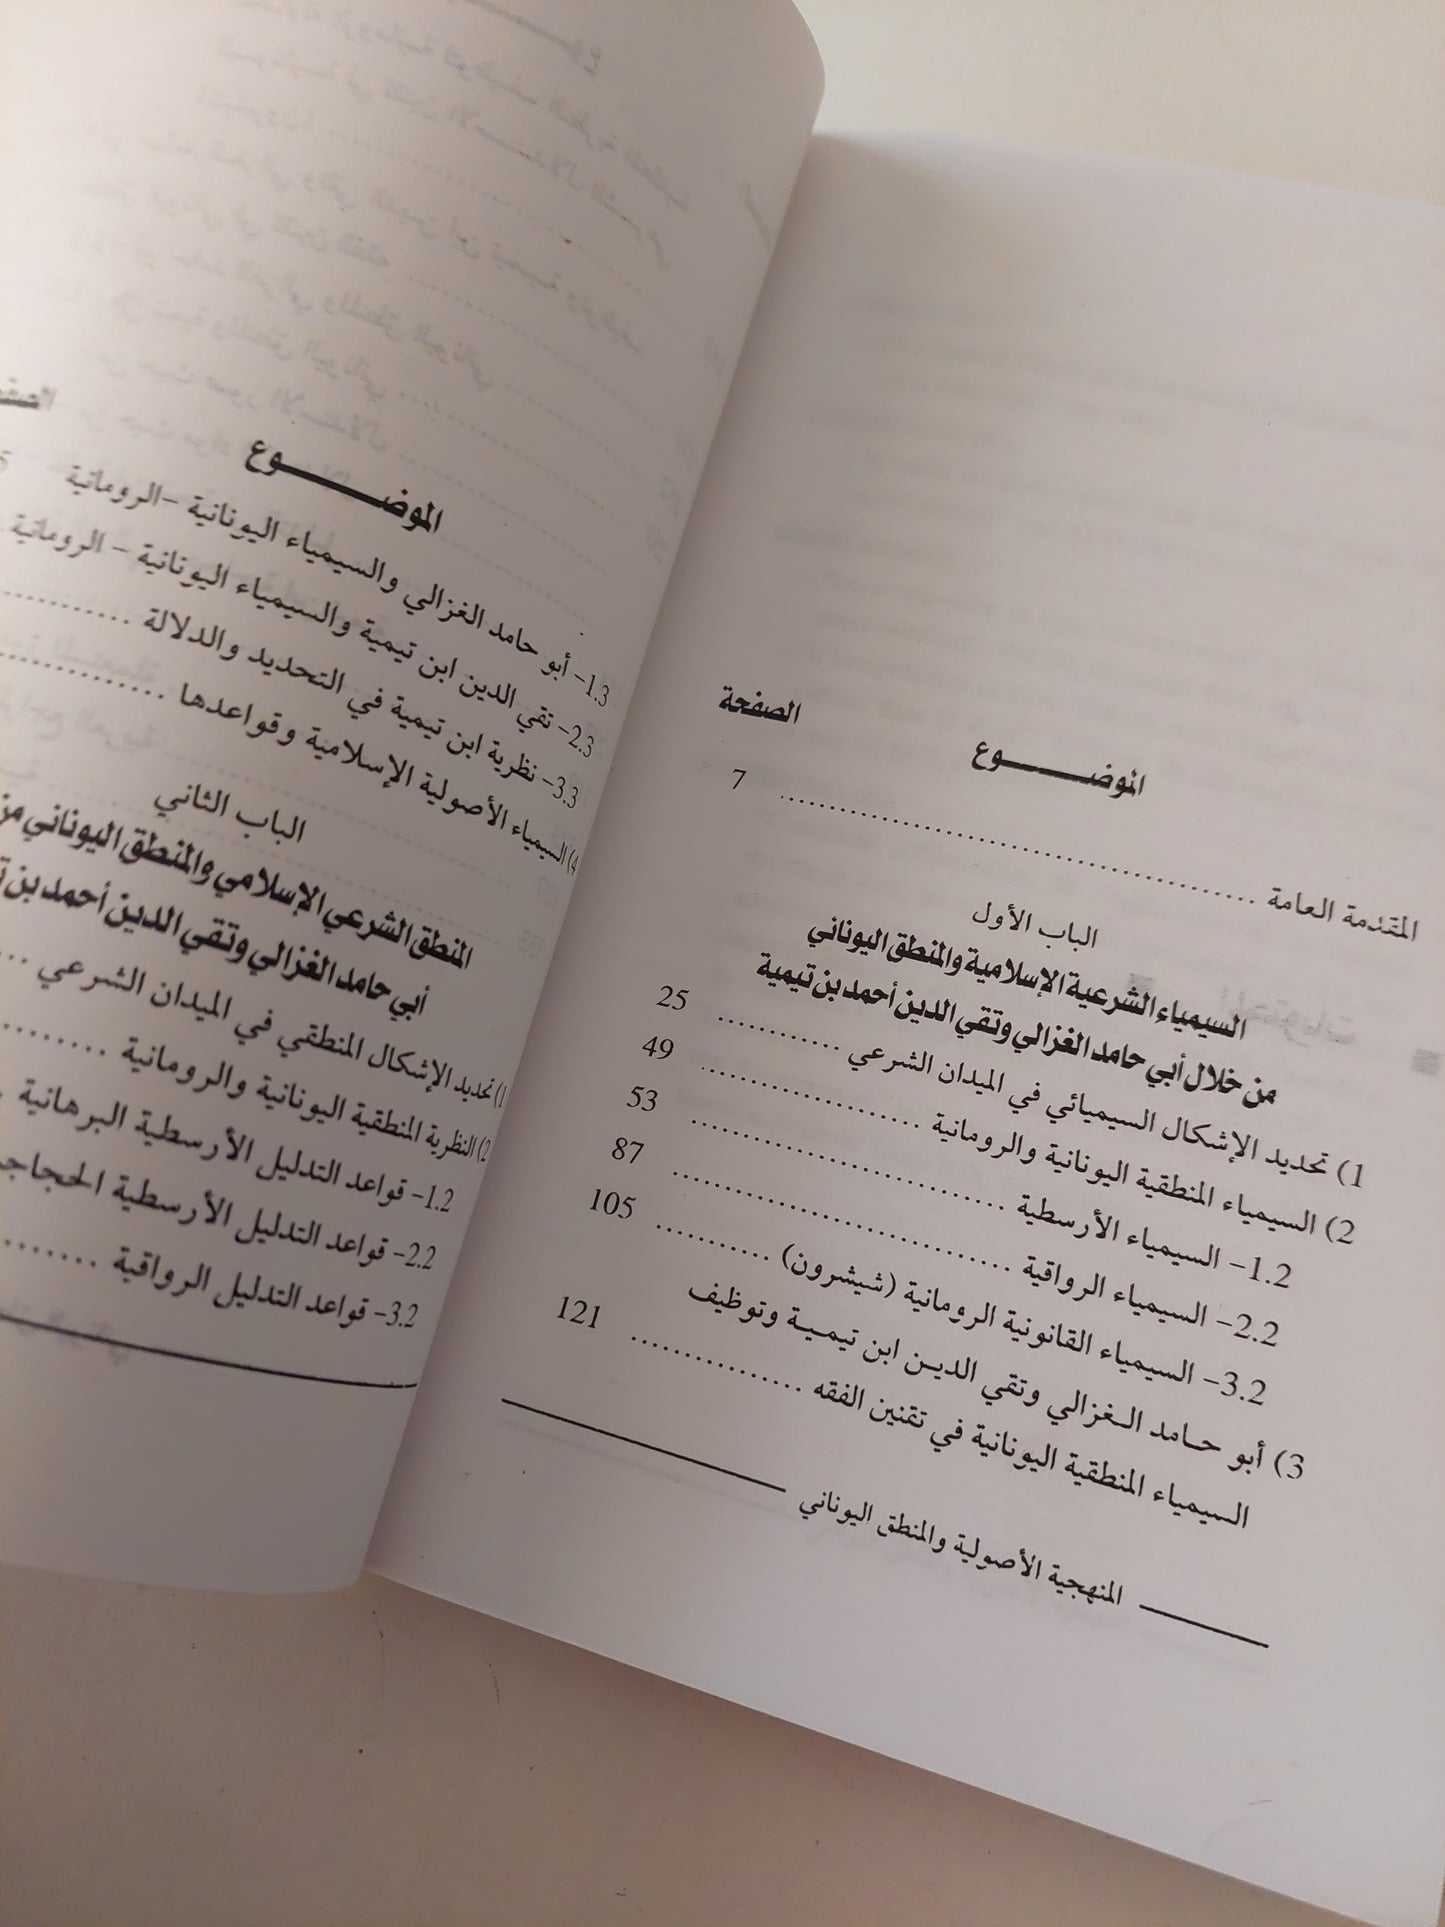 الموضـــــوع الصفحة
المقدمة العامة ........................................ 7
الباب الأول
السيمياء الشرعية الإسلامية والمنطق اليوناني
من خلال أبي حامد الغزالي وتقي الدين أحمد بن تيمية
1) تحديد الإشكال السيميائي في الميدان الشرعي .......... 25
2) السيمياء المنطقية اليونانية والرومانية ................ 49
1.2- السيمياء الأرسطية .......................... 53
2.2- السيمياء الرواقية ............................ 87
3.2- السيمياء القانونية الرومانية (شيشرون) .......... 105
3) أبو حامد الغزالي وتقي الدين ابن تيمية وتوظيف
السيمياء المنطقية اليونانية في تقنين الفقه ............... 121
المنهجية الأصولية والمنطق اليوناني
الموضـــــوع
1.3- أبو حامد الغزالي والسيمياء اليونانية -الرومانية
2.3- تقي الدين ابن تيمية والسيمياء اليونانية - الرومانية
3.3- نظرية ابن تيمية في التحديد والدلالة ............
4) السيمياء الأصولية الإسلامية وقواعدها ...............
الباب الثاني
المنطق الشرعي الإسلامي والمنطق اليوناني من
أبي حامد الغزالي وتقي الدين أحمد بن
1) تحديد الإشكال المنطقي في الميدان الشرعي ...
2) النظرية المنطقية اليونانية والرومانية ..........
1.2- قواعد التدليل الأرسطية البرهانية .
2.2- قواعد التدليل الأرسطية
3.2- قواعد التدليل الرواقية .......